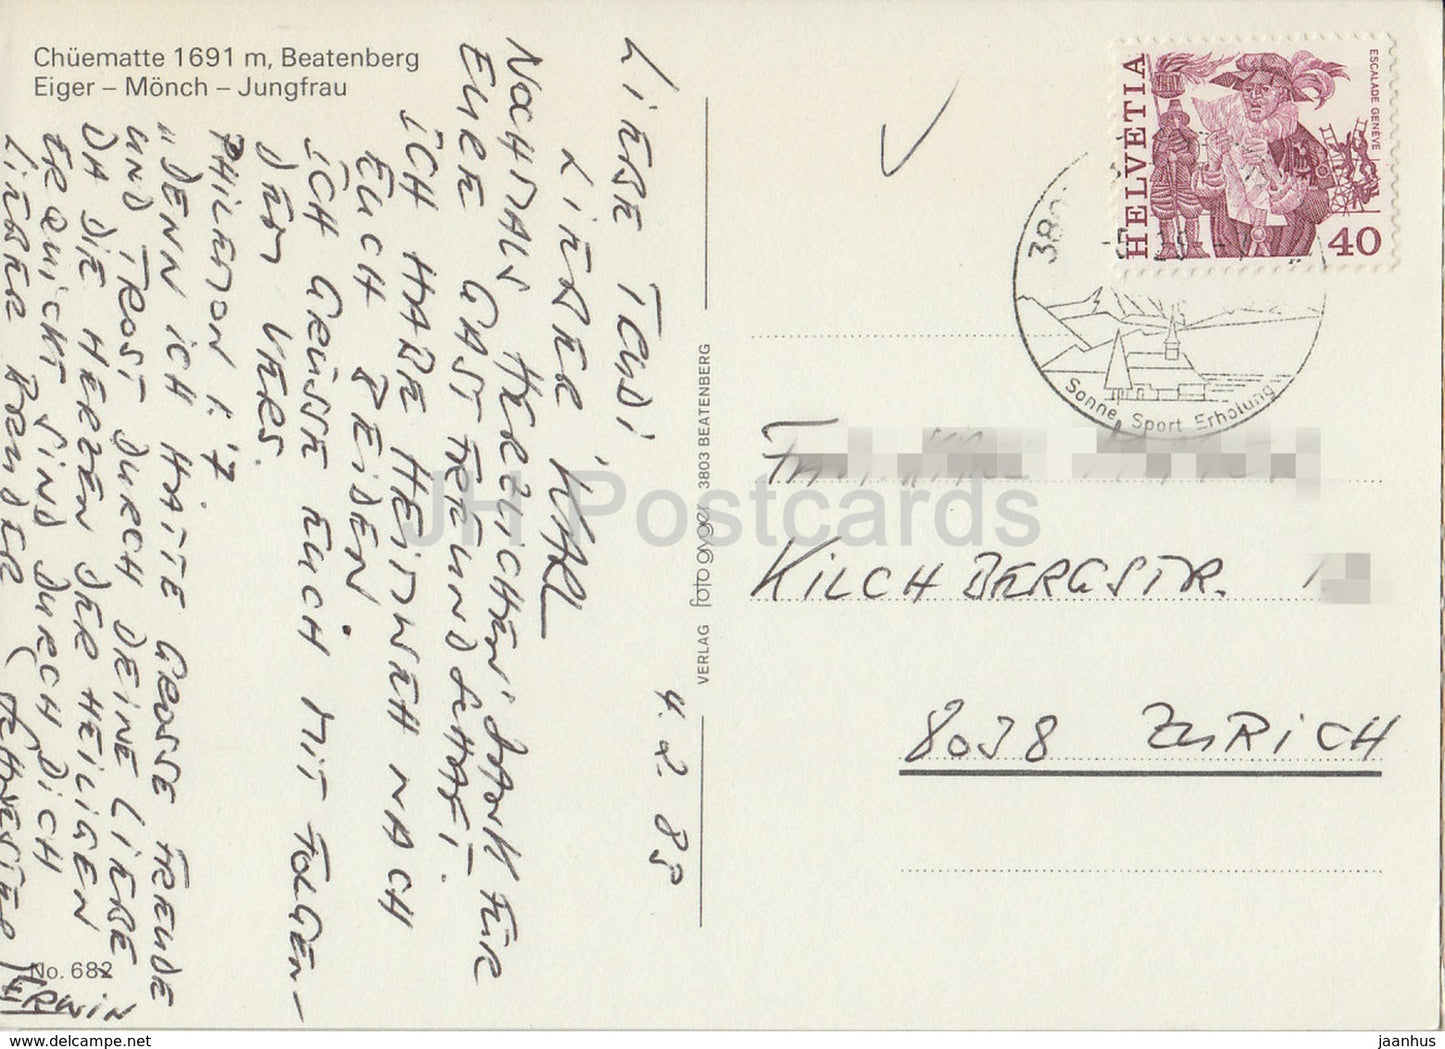 Chüematte 1691 m, Beatenberg
Eiger – Mönch – Jungfrau
LIEBE TRUDI
LIEBER KARL
NOCHMALS HERZLICHEN DANK FÜR
EURE GASTFREUNDSCHAFT.
ICH HABE HEIMWEH NACH
EUCH BEIDEN
ICH GRÜSSE EUCH MIT FOLGEN-
DEM VERS.
PHILEMON 1.'7
"DENN ICH HÄTTE GROSSE FREUDE
UND TROST DURCH DEINE LIEBE
DA DIE HERZEN DER HEILIGEN
ERQUICKT SIND DURCH DICH
LIEBER BRUDER (SCHWESTER)
ERWIN
4. 2. 85
No. 682
VERLAG foto gyger 3803 BEATENBERG
HELVETIA
ESCALADE GENÈVE
40
380
Sonne, Sport Erholung
KILCHBERGSTR.
8038 ZÜRICH
JH Postcards
Esty-ma.eu on delcampe.net
jaanhus